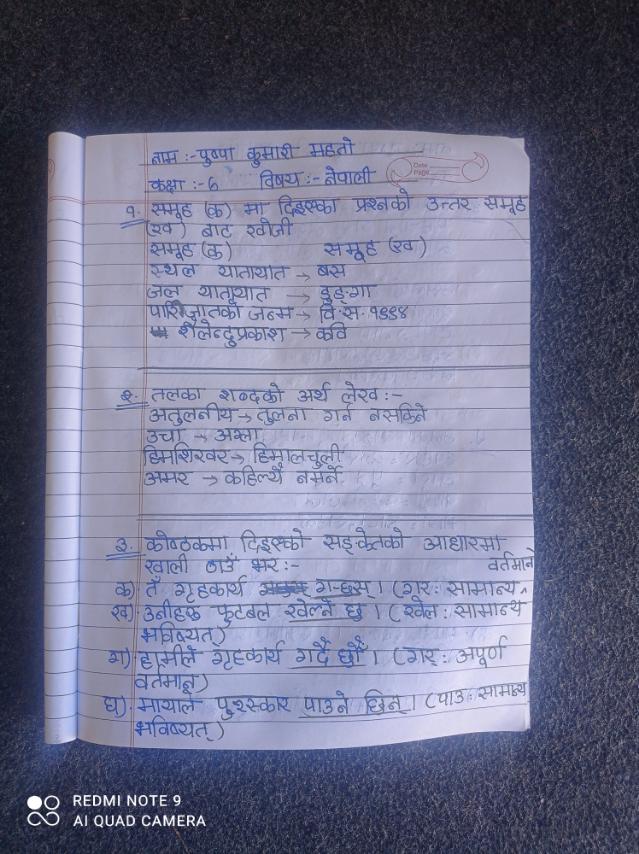 नाम :- पुष्पा कुमारी महतो
Date
Page
कक्षा :- ६ विषय :- नेपाली
१. समूह (क) मा दिइएका प्रश्नको उत्तर समूह
(ख) बाट खोजी
समूह (क) समूह (ख)
स्थल यातायात → बस
जल यातायात → डुङ्गा
पारिजातको जन्म → वि.स. १९९४
शैलेन्दुप्रकाश → कवि
२. तलका शब्दको अर्थ लेख :-
अतुलनीय → तुलना गर्न नसकिने
उचा → अग्ला
हिमशिखर → हिमालचुली
अमर → कहिल्यै नमर्ने
३. कोष्ठकमा दिइएको सङ्केतको आधारमा
खाली ठाउँ भर :- वर्तमान
क) तँ गृहकार्य गर्छस् । (गर : सामान्य ^
ख) उनीहरू फुटबल खेल्ने छन् । (खेल : सामान्य
भविष्यत्)
ग) हामीले गृहकार्य गर्दै छौँ । (गर् : अपूर्ण
वर्तमान)
घ) मायाले पुरस्कार पाउने छिन् । (पाउ : सामान्य
भविष्यत्)
REDMI NOTE 9
AI QUAD CAMERA